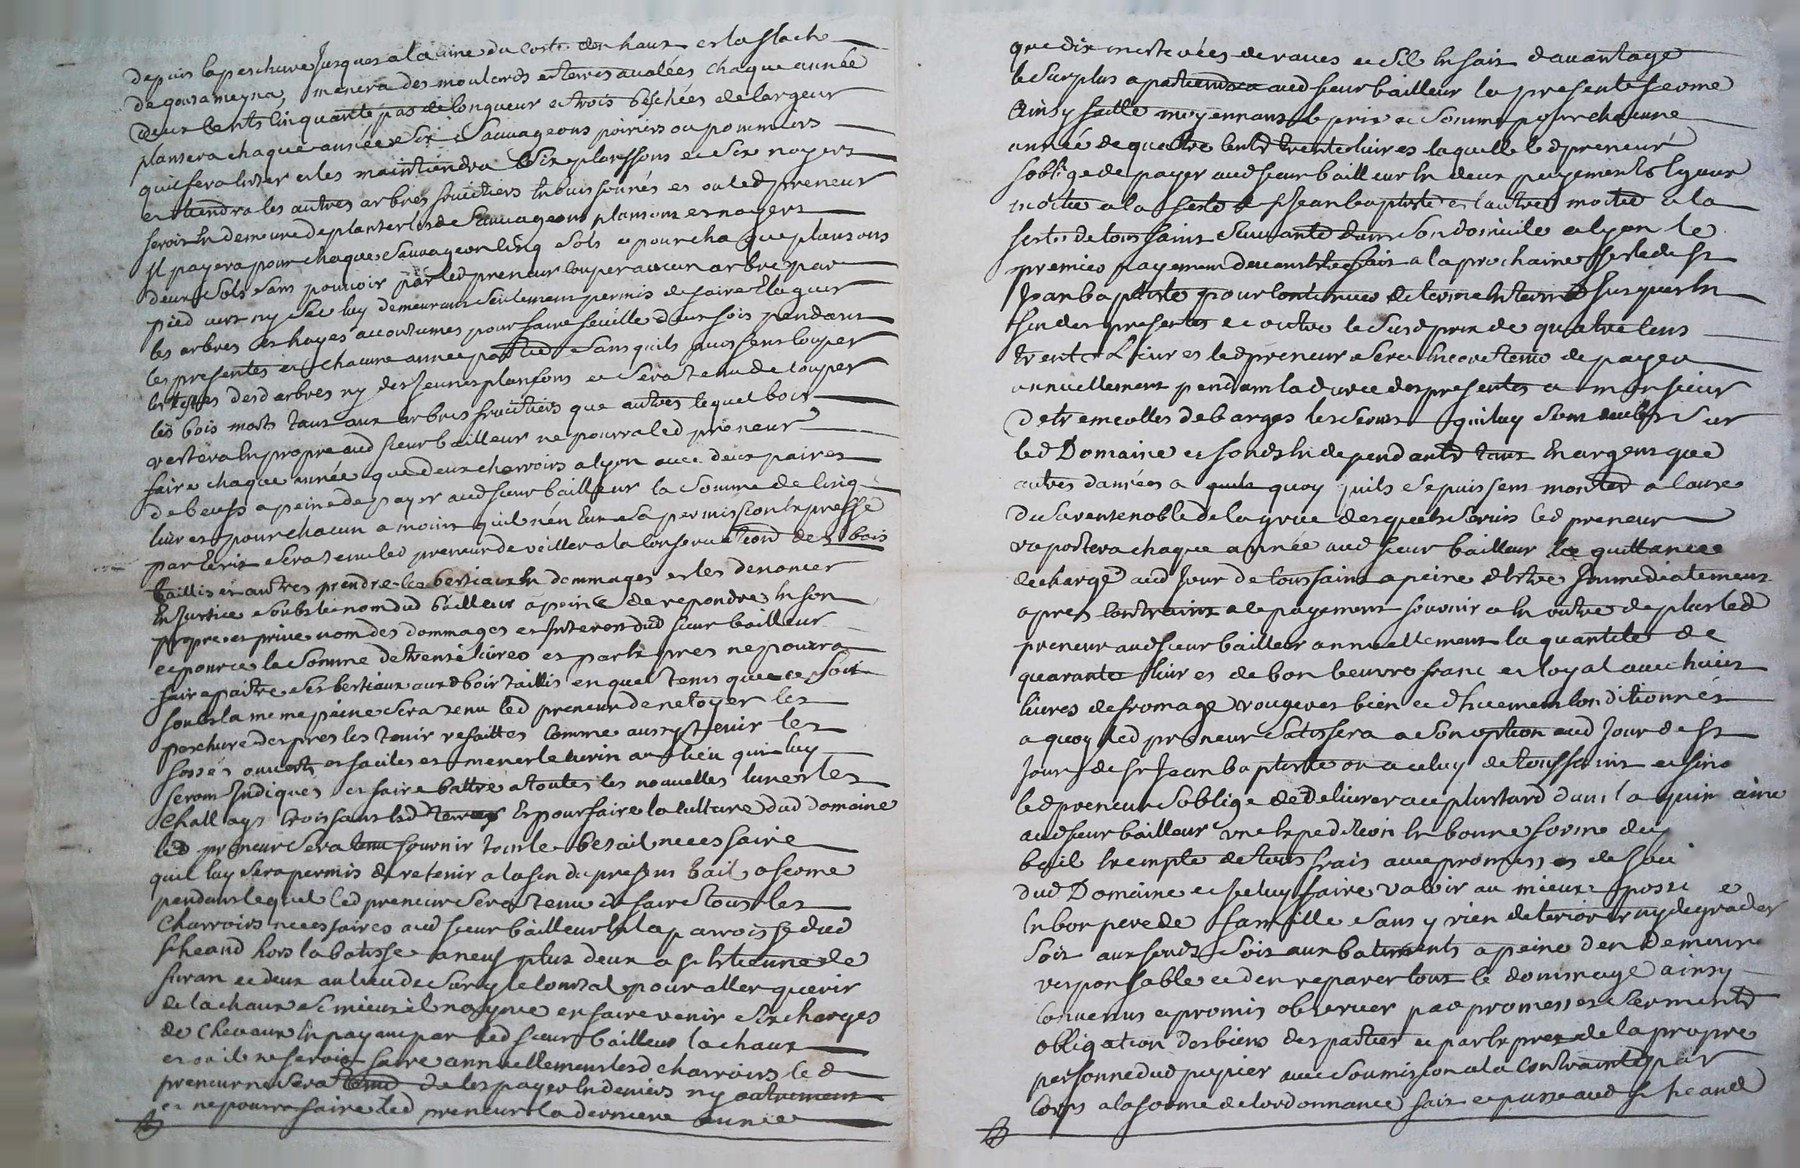 depuis la peschure Jusques a la cime du coste den haut et la flache
de gourameyna, menera des moulards et terres avalées chaque année
deux cents cinquante pas de longueur et trois béschées de largeur
plantera chaque année six sauvageons poiriers ou pommiers
quil fera enter et les maintiendra six plansons et six noyers
et tiendra les autres arbres fruitiers en buissonnés et ou led preneur
seroit en demeure de planter lesd sauvageons plansons et noyers
Il payera pour chaque sauvageon cinq sols et pour chaque plansons
deux sols sans pouvoir par led preneur couper aucun arbre par
pied vert ny sec luy demeurant seulement permis de faire Elaguer
les arbres et hayes accoutumés pour faire feuille deux fois pendant
les presentes et chacune année sans quils puissent couper
les testes desd arbres ny des Jeunes plansons et sera tenu de couper
les bois morts tant aux arbres fruitiers que autres lequel bois
restera En propre aud sieur bailleur ne pourra led preneur
faire chaque année que deux charrois a lyon avec deux paires
de beufs a peine de payer aud sieur bailleur la somme de cinq
livres pour chacun a moins quil nen Eut sa permission Expresse
par Ecrit sera tenu led preneur de veiller a la conservation des bois
taillis et autres prendre les bestiaux En dommages et les denoncer
En Justice soubs le nom dud bailleur a peine de repondre En son
propre et privé nom des dommages et Interets dud sieur bailleur
et pour ce la somme de trente livres et par Exprès ne pourra
faire paitre ses bestiaux auxd bois taillis en quel tems que ce soit
sous la meme peine sera tenu led preneur de netoyer les
peschures des pres les tenir refaittes comme aussy tenir les
fossés ouverts et faciles et mener le terin au lieu qui luy
seront Indiqués et faire battre a toutes les nouvelles lunes les
led preneur sera tenu fournir tout le betail necessaire
quil luy sera permis de retenir a la fin du present bail a ferme
pendant lequel led preneur sera tenu de faire tous les
charrois necessaires aud sieur bailleur En la parroisse dud
st heand hors la batisse a neuf plus deux a st Etienne de
furan et deux au lieu de Sury le Comtal pour aller querir
de la chaux si mieux il n'ayme en faire venir six charges
de chevaux En payant par led sieur bailleur la chaux
et ou il ne feroit faire annuellement lesd charrois led
preneur ne sera tenu de les payer En deniers ny autrement
et ne pourra faire led preneur la derniere année
que dix mesterées de raves et sil En fait davantage
le surplus apartiendra aud sieur bailleur la presente ferme
Ainsy faitte moyennant le prix et somme pour chacune
année de quatre cents trente livres laquelle led preneur
soblige de payer aud sieur bailleur En deux payements Egaux
moitié a la feste de st Jean baptiste et l'autre moitié a la
feste de toussaint suivante dans son domicile a lyon le
premier payement devant Etre fait a la prochaine feste de st
Jean baptiste pour continuer de terme En terme Jusques En
fin des presentes et outre le susd prix de quatre cens
trente Livres led preneur sera Encore tenu de payer
annuellement pendant la durée des presentes a monsieur
de tremeolles de barges les servis qui luy sont deubs sur
led Domaine et fonds En dependants tant En argent que
autres danrées a quoy quils se puissent monter a cause
de sa rente noble de la grüe desquels servis led preneur
raportera chaque année aud sieur bailleur les quittances
decharge aud Jour de toussaint a peine dEstre Immediatement
apres contraint a le payement fournir En outre de plus led
preneur aud sieur bailleur annuellement la quantité de
quarante livres de bon beurre franc et loyal avec huict
livres de fromage rougeret bien et dhuement conditionnés
a quoy led preneur satisfera a son option aud Jour de st
Jour de st Jean baptiste ou a celuy de toussaint et sino
led preneur soblige de delivrer au plus tard dans la quinzaine
aud sieur bailleur une Expedition En bonne forme du
bail Exempte de tous frais avec promesses de
dud Domaine et Iceluy faire valoir au mieux possi e
En bon pere de famille sans y rien deteriorer ny degrader
soit aux fonds soit aux batiments a peine d'en demeurer
responsable et den reparer tout le dommage ainsy
convenus et promis observer par promesses serments
obligation des biens des parties et par Expres de la propre
personne dud papier avec soumission a la contrainte par
corps a la forme de lordonnance fait et passé aud st heand